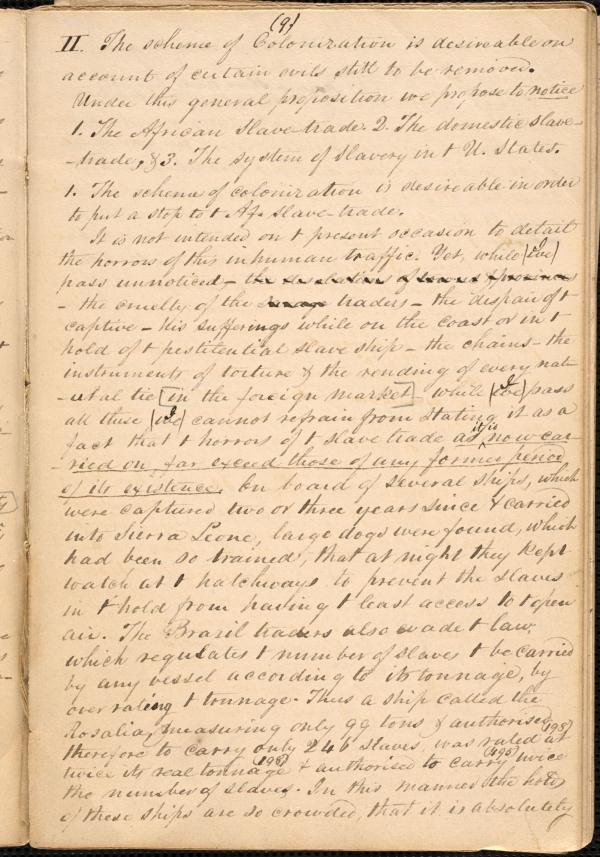 (9)
II. The scheme of Colonization is desireable on
account of certain evils still to be removed.
Under this general proposition we propose to notice
1. The African Slave trade. 2. The domestic slave-
-trade, & 3. The system of slavery in t U. States.
1. The scheme of colonization is desireable in order
to put a stop to t Af. slave-trade.
It is not intended on t present occasion to detail
the horrors of this inhuman traffic. Yet, while (we) I
pass unnoticed – the desolations of
– the cruelty of the savage traders – the despair of t
captive – his sufferings while on the coast or in t
hold of t pestilential slave ship – the chains – the
instruments of torture & the rending of every nat-
-ural tie [in the foreign market] – while (we) I pass
all these (we) I cannot refrain from stating it as a
fact that t horrors of t slave trade as it is now car-
-ried on, far exceed those of any former period
of its existence. On board of several ships, which
were captured two or three years since & carried
into Sierra Leone, large dogs were found, which
had been so trained, that at night they kept
watch at t hatchways to prevent the slaves
in t hold from having t least access to t open
air. The Brazil traders also evade t law,
which regulates t number of slaves t be carried
by any vessel according to its tonnage, by
over rating t tonnage. Thus a ship called the
Rosalia, measuring only 99 tons & authorised
therefore to carry only 246 slaves, was rated at (198)
twice its real tonnage (198) & authorised to carry (493) twice
the number of slaves. In this manner the holds
of these ships are so crowded, that it is absolutely